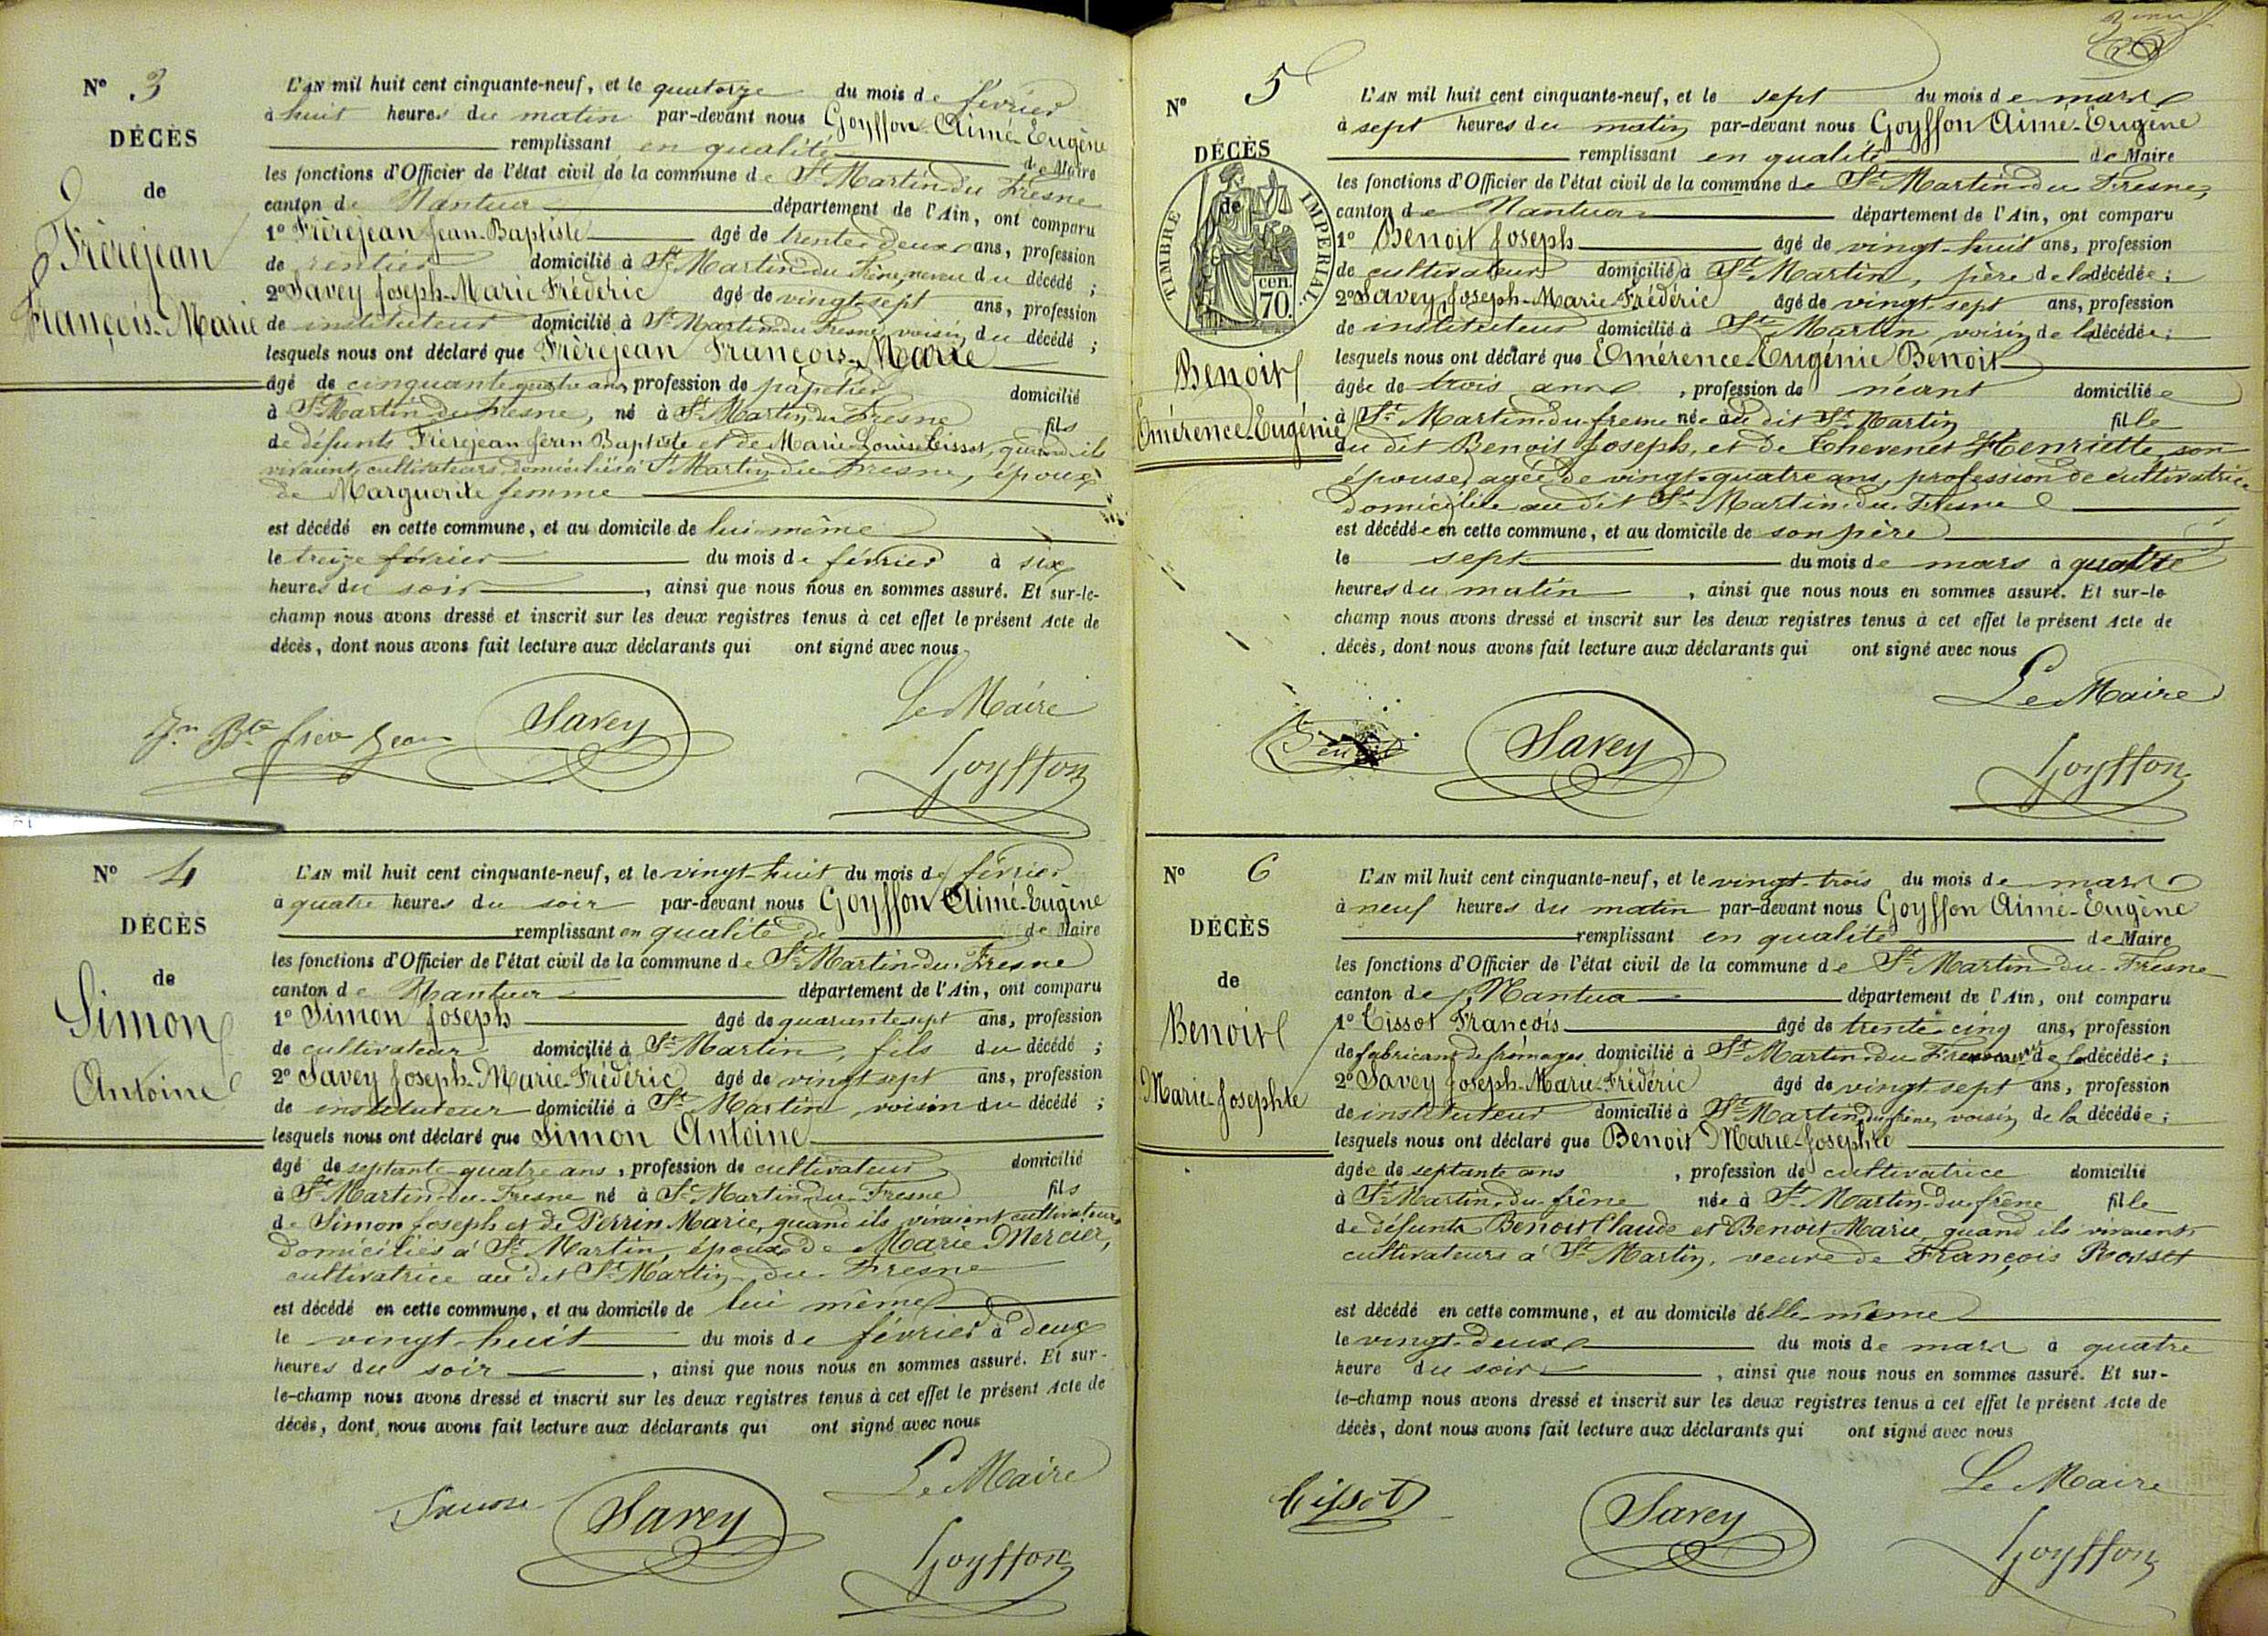 Nº 3
DÉCÈS
de
Frèrejean
François-Marie
L'AN mil huit cent cinquante-neuf, et le quatorze du mois de février
à huit heures du matin par-devant nous Goyffon Aimé-Eugène
remplissant en qualité de Maire
les fonctions d'Officier de l'état civil de la commune de St Martin du Fresne
canton de Nantua département de l'Ain, ont comparu
1º Frèrejean Jean-Baptiste âgé de trente deux ans, profession
de rentier domicilié à St Martin du Frêne, neveu du décédé ;
2º Savey Joseph-Marie Frédéric âgé de vingt-sept ans, profession
de instituteur domicilié à St Martin du Fresne, voisin du décédé ;
lesquels nous ont déclaré que Frèrejean François-Marie
âgé de cinquante quatre ans, profession de papetier domicilié
à St Martin du Fresne, né à St Martin du Fresne fils
de défunts Frèrejean Jean Baptiste et de Marie Louise Tissot, quand ils
vivaient, cultivateurs, domiciliés à St Martin du Fresne, époux
de Marguerite femme
est décédé en cette commune, et au domicile de lui-même
le treize février du mois de février à six
heures du soir, ainsi que nous nous en sommes assuré. Et sur-le-
champ nous avons dressé et inscrit sur les deux registres tenus à cet effet le présent Acte de
décès, dont nous avons fait lecture aux déclarants qui ont signé avec nous
Le Maire
Jn Bte frère Jean Savey Goyffon
Nº 4
DÉCÈS
de
Simon
Antoine
L'AN mil huit cent cinquante-neuf, et le vingt-huit du mois de février
à quatre heures du soir par-devant nous Goyffon Aimé-Eugène
remplissant en qualité de de Maire
les fonctions d'Officier de l'état civil de la commune de St Martin-du-Fresne
canton de Nantua département de l'Ain, ont comparu
1º Simon Joseph âgé de quarante-sept ans, profession
de cultivateur domicilié à St Martin, fils du décédé ;
2º Savey Joseph-Marie-Frédéric âgé de vingt sept ans, profession
de instituteur domicilié à St Martin, voisin du décédé ;
lesquels nous ont déclaré que Simon Antoine
âgé de septante-quatre ans, profession de cultivateur domicilié
à St Martin-du-Fresne né à St Martin-du-Fresne fils
de Simon Joseph et de Perrin Marie, quand ils vivaient cultivateurs
domiciliés à St Martin, époux de Marie Mercier,
cultivatrice au dit St Martin-du-Fresne
est décédé en cette commune, et au domicile de lui même
le vingt-huit du mois de février à deux
heures du soir, ainsi que nous nous en sommes assuré. Et sur-
le-champ nous avons dressé et inscrit sur les deux registres tenus à cet effet le présent Acte de
décès, dont nous avons fait lecture aux déclarants qui ont signé avec nous
Le Maire
Simon Savey Goyffon
Nº 5
DÉCÈS
de
TIMBRE IMPERIAL.
cen.
70.
Benoit
Emérence-Eugénie
L'AN mil huit cent cinquante-neuf, et le sept du mois de mars
à sept heures du matin par-devant nous Goyffon Aimé-Eugène
remplissant en qualité de Maire
les fonctions d'Officier de l'état civil de la commune de St Martin-du Fresne,
canton de Nantua département de l'Ain, ont comparu
1º Benoit Joseph âgé de vingt-huit ans, profession
de cultivateur domicilié à St Martin, père de la décédée ;
2º Savey, Joseph-Marie-Frédéric âgé de vingt sept ans, profession
de instituteur domicilié à St Martin voisin de la décédée ;
lesquels nous ont déclaré que Emérence-Eugénie Benoit
âgée de trois ans, profession de néant domiciliée
à St Martin-du-fresne née au dit St Martin fille
du dit Benoit Joseph, et de Chevenet Henriette son
épouse, agée de vingt-quatre ans, profession de cultivatrice
domiciliée au dit St Martin-du-Fresne
est décédée en cette commune, et au domicile de son père
le sept du mois de mars à quatre
heures du matin, ainsi que nous nous en sommes assuré. Et sur-le
champ nous avons dressé et inscrit sur les deux registres tenus à cet effet le présent Acte de
décès, dont nous avons fait lecture aux déclarants qui ont signé avec nous
Le Maire
Benoit Savey Goyffon
Nº 6
DÉCÈS
de
Benoit
Marie-Josephte
L'AN mil huit cent cinquante-neuf, et le vingt-trois du mois de mars
à neuf heures du matin par-devant nous Goyffon Aimé-Eugène
remplissant en qualité de Maire
les fonctions d'Officier de l'état civil de la commune de St Martin-du-Fresne
canton de Nantua département de l'Ain, ont comparu
1º Tissot François âgé de trente-cinq ans, profession
de fabricant de fromages domicilié à St Martin-du de la décédée ;
2º Savey Joseph-Marie-Frédéric âgé de vingt sept ans, profession
de instituteur domicilié à St Martin du frêne, voisin de la décédée ;
lesquels nous ont déclaré que Benoit Marie-Josephte
âgée de septante ans, profession de cultivatrice domicilié
à St Martin-du frêne née à St Martin-du frêne fille
de défunts Benoit Claude et Benoit Marie, quand ils vivaient
cultivateurs à St Martin, veuve de François Rosset
est décédé en cette commune, et au domicile d'elle même
le vingt-deux du mois de mars à quatre
heure du soir, ainsi que nous nous en sommes assuré. Et sur-
le-champ nous avons dressé et inscrit sur les deux registres tenus à cet effet le présent Acte de
décès, dont nous avons fait lecture aux déclarants qui ont signé avec nous
Le Maire
Tissot Savey Goyffon